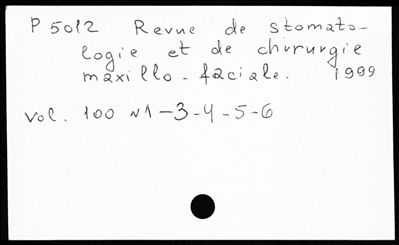 P 5012 Revue de stomato-
logie et de chirurgie
maxillo-faciale. 1999
vol. 100 N1-3-4-5-6